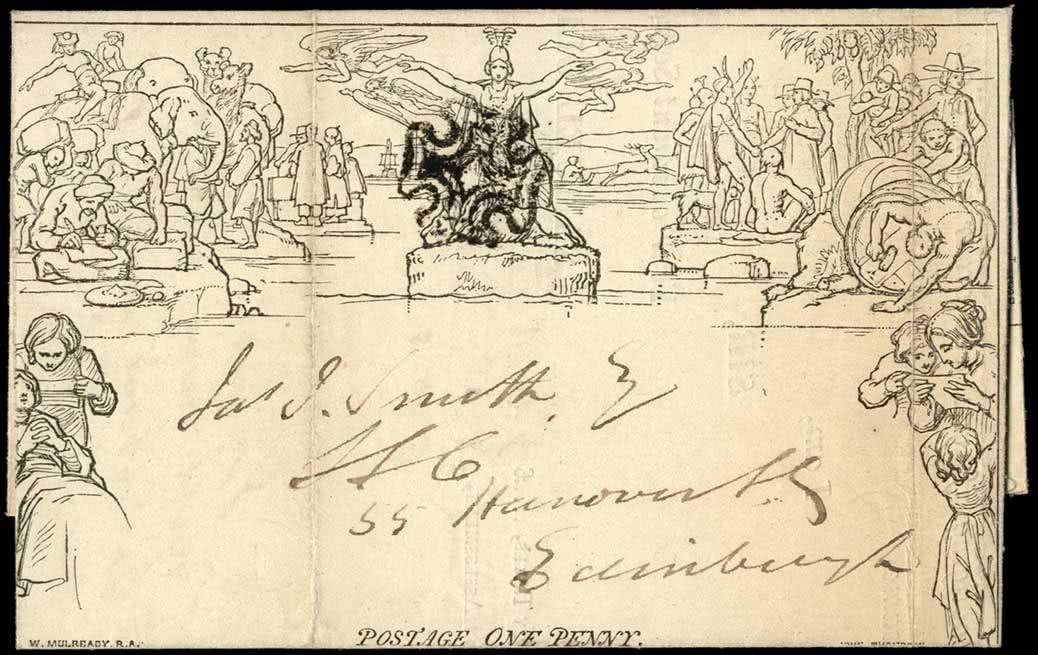 Jas J. Smith Esq
S S C
55 Hanover St
Edinburgh
W. MULREADY. R.A.
POSTAGE ONE PENNY.